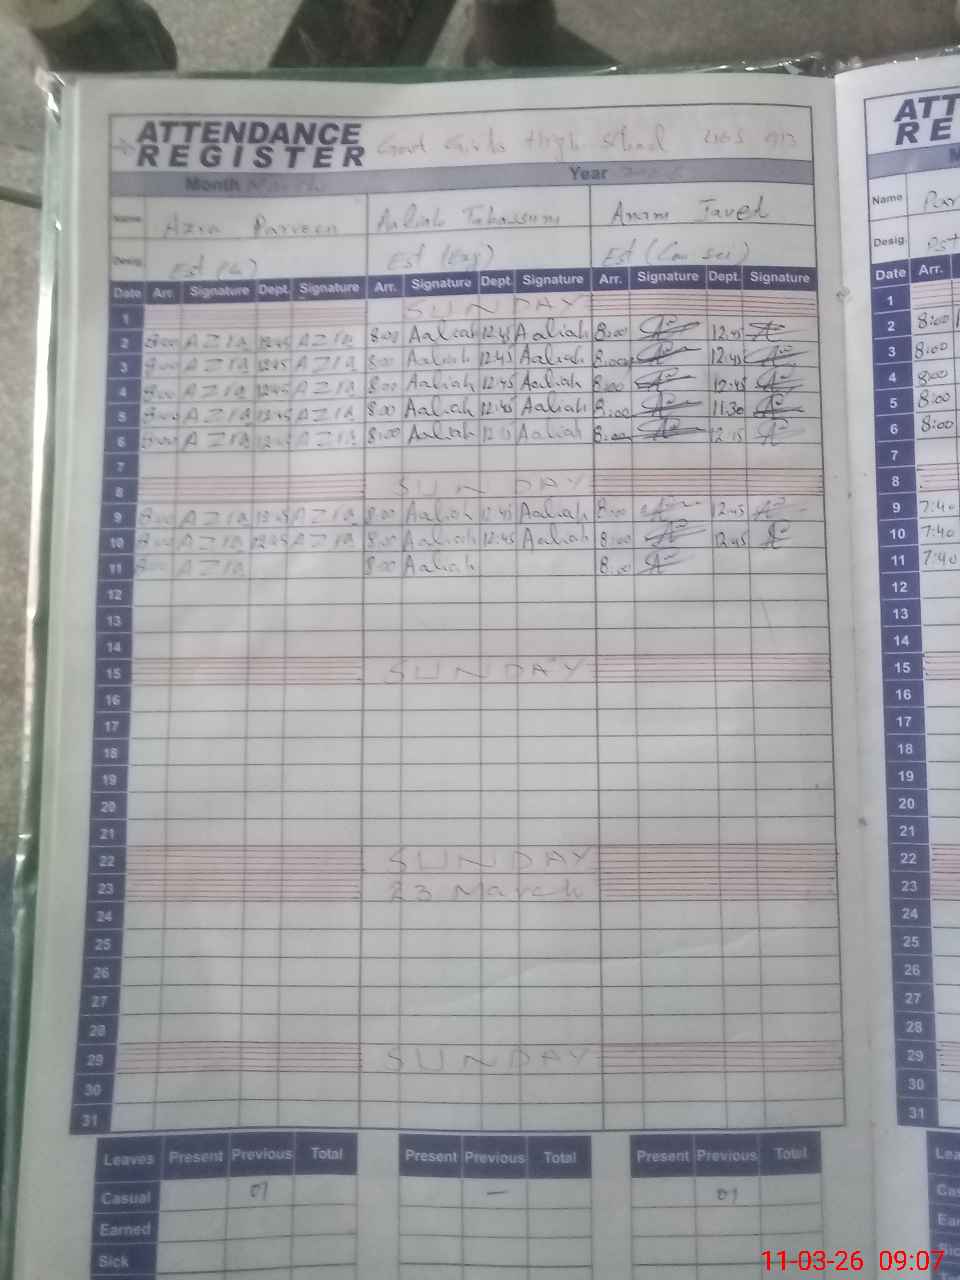 ATTENDANCE REGISTER Govt Girls High School
Month March Year
Name Azra Parveen Aaliah Tabassum Anam Javed
Desig. Est Est (Eng) Est
Date Arr. Signature Dept. Signature Arr. Signature Dept. Signature Arr. Signature Dept. Signature
1 SUNDAY
2 8:00 AZRA 12:45 AZRA 8:00 Aaliah 12:45 Aaliah 8:00 12:45
3 8:00 AZRA 12:45 AZRA 8:00 Aaliah 12:45 Aaliah 8:00 12:45
4 8:00 AZRA 12:45 AZRA 8:00 Aaliah 12:45 Aaliah 8:00 12:45
5 8:00 AZRA 12:45 AZRA 8:00 Aaliah 12:45 Aaliah 8:00 11:30
6 8:00 AZRA AZRA 8:00 Aaliah 12:15 Aaliah 8:00 12:15
7
8 SUNDAY
9 8:00 AZRA 12:45 AZRA 8:00 Aaliah 12:45 Aaliah 8:00 12:45
10 8:00 AZRA 12:45 AZRA 8:00 Aaliah 12:45 Aaliah 8:00 12:45
11 8:00 AZRA 8:00 Aaliah 8:00
12
13
14
15 SUNDAY
16
17
18
19
20
21
22 SUNDAY
23 23 March
24
25
26
27
28
29 SUNDAY
30
31
Leaves Present Previous Total Present Previous Total Present Previous Total
Casual 01 — 01
Earned
Sick
ATT
RE
Name
Desig.
Date Arr.
1
2 8:00
3 8:00
4 8:00
5 8:00
6 8:00
7
8
9 7:40
10 7:40
11 7:40
12
13
14
15
16
17
18
19
20
21
22
23
24
25
26
27
28
29
30
31
11-03-26 09:07